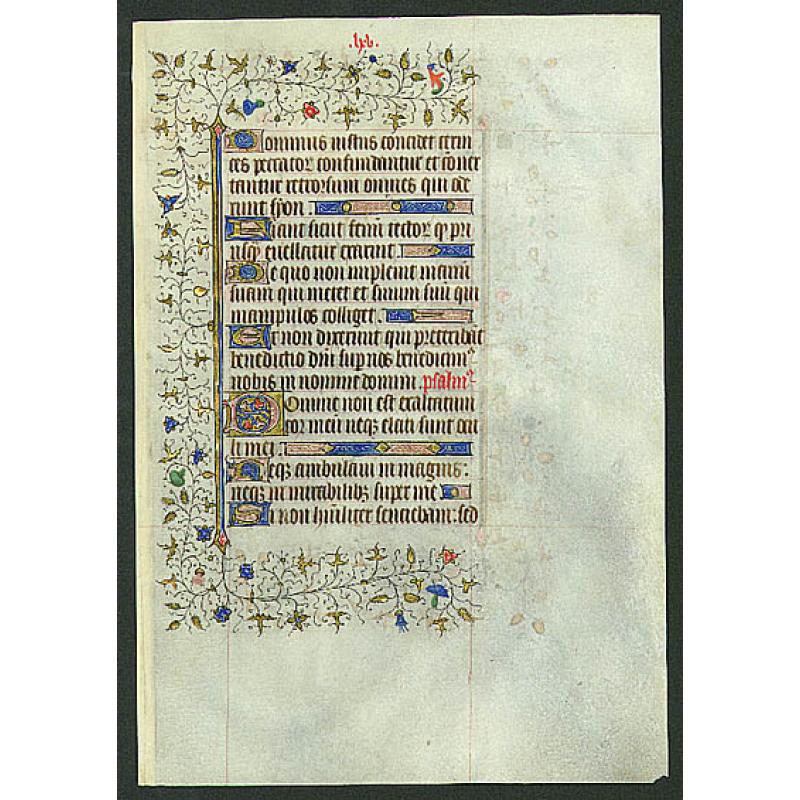 .lxv.
Dominus iustus concidet cervi
ces peccator confundantur et conver
tantur retrorsum omnes qui ode
runt syon.
Fiant sicut fenu tector qd pri
usq evellatur exaruit
De quo non implevit manu
suam qui metet et sinum suu qui
manipulos colliget.
Et non dixerunt qui preteribat
benedictio dni sup nos benedicim
nobis in nomine domini. psalm
Domine non est exaltatum
cor meu neqz elati sunt ocu
li mei.
Neqz ambulavi in magnis:
neqz in mirabilibz super me
Si non huiliter sentiebam: sed